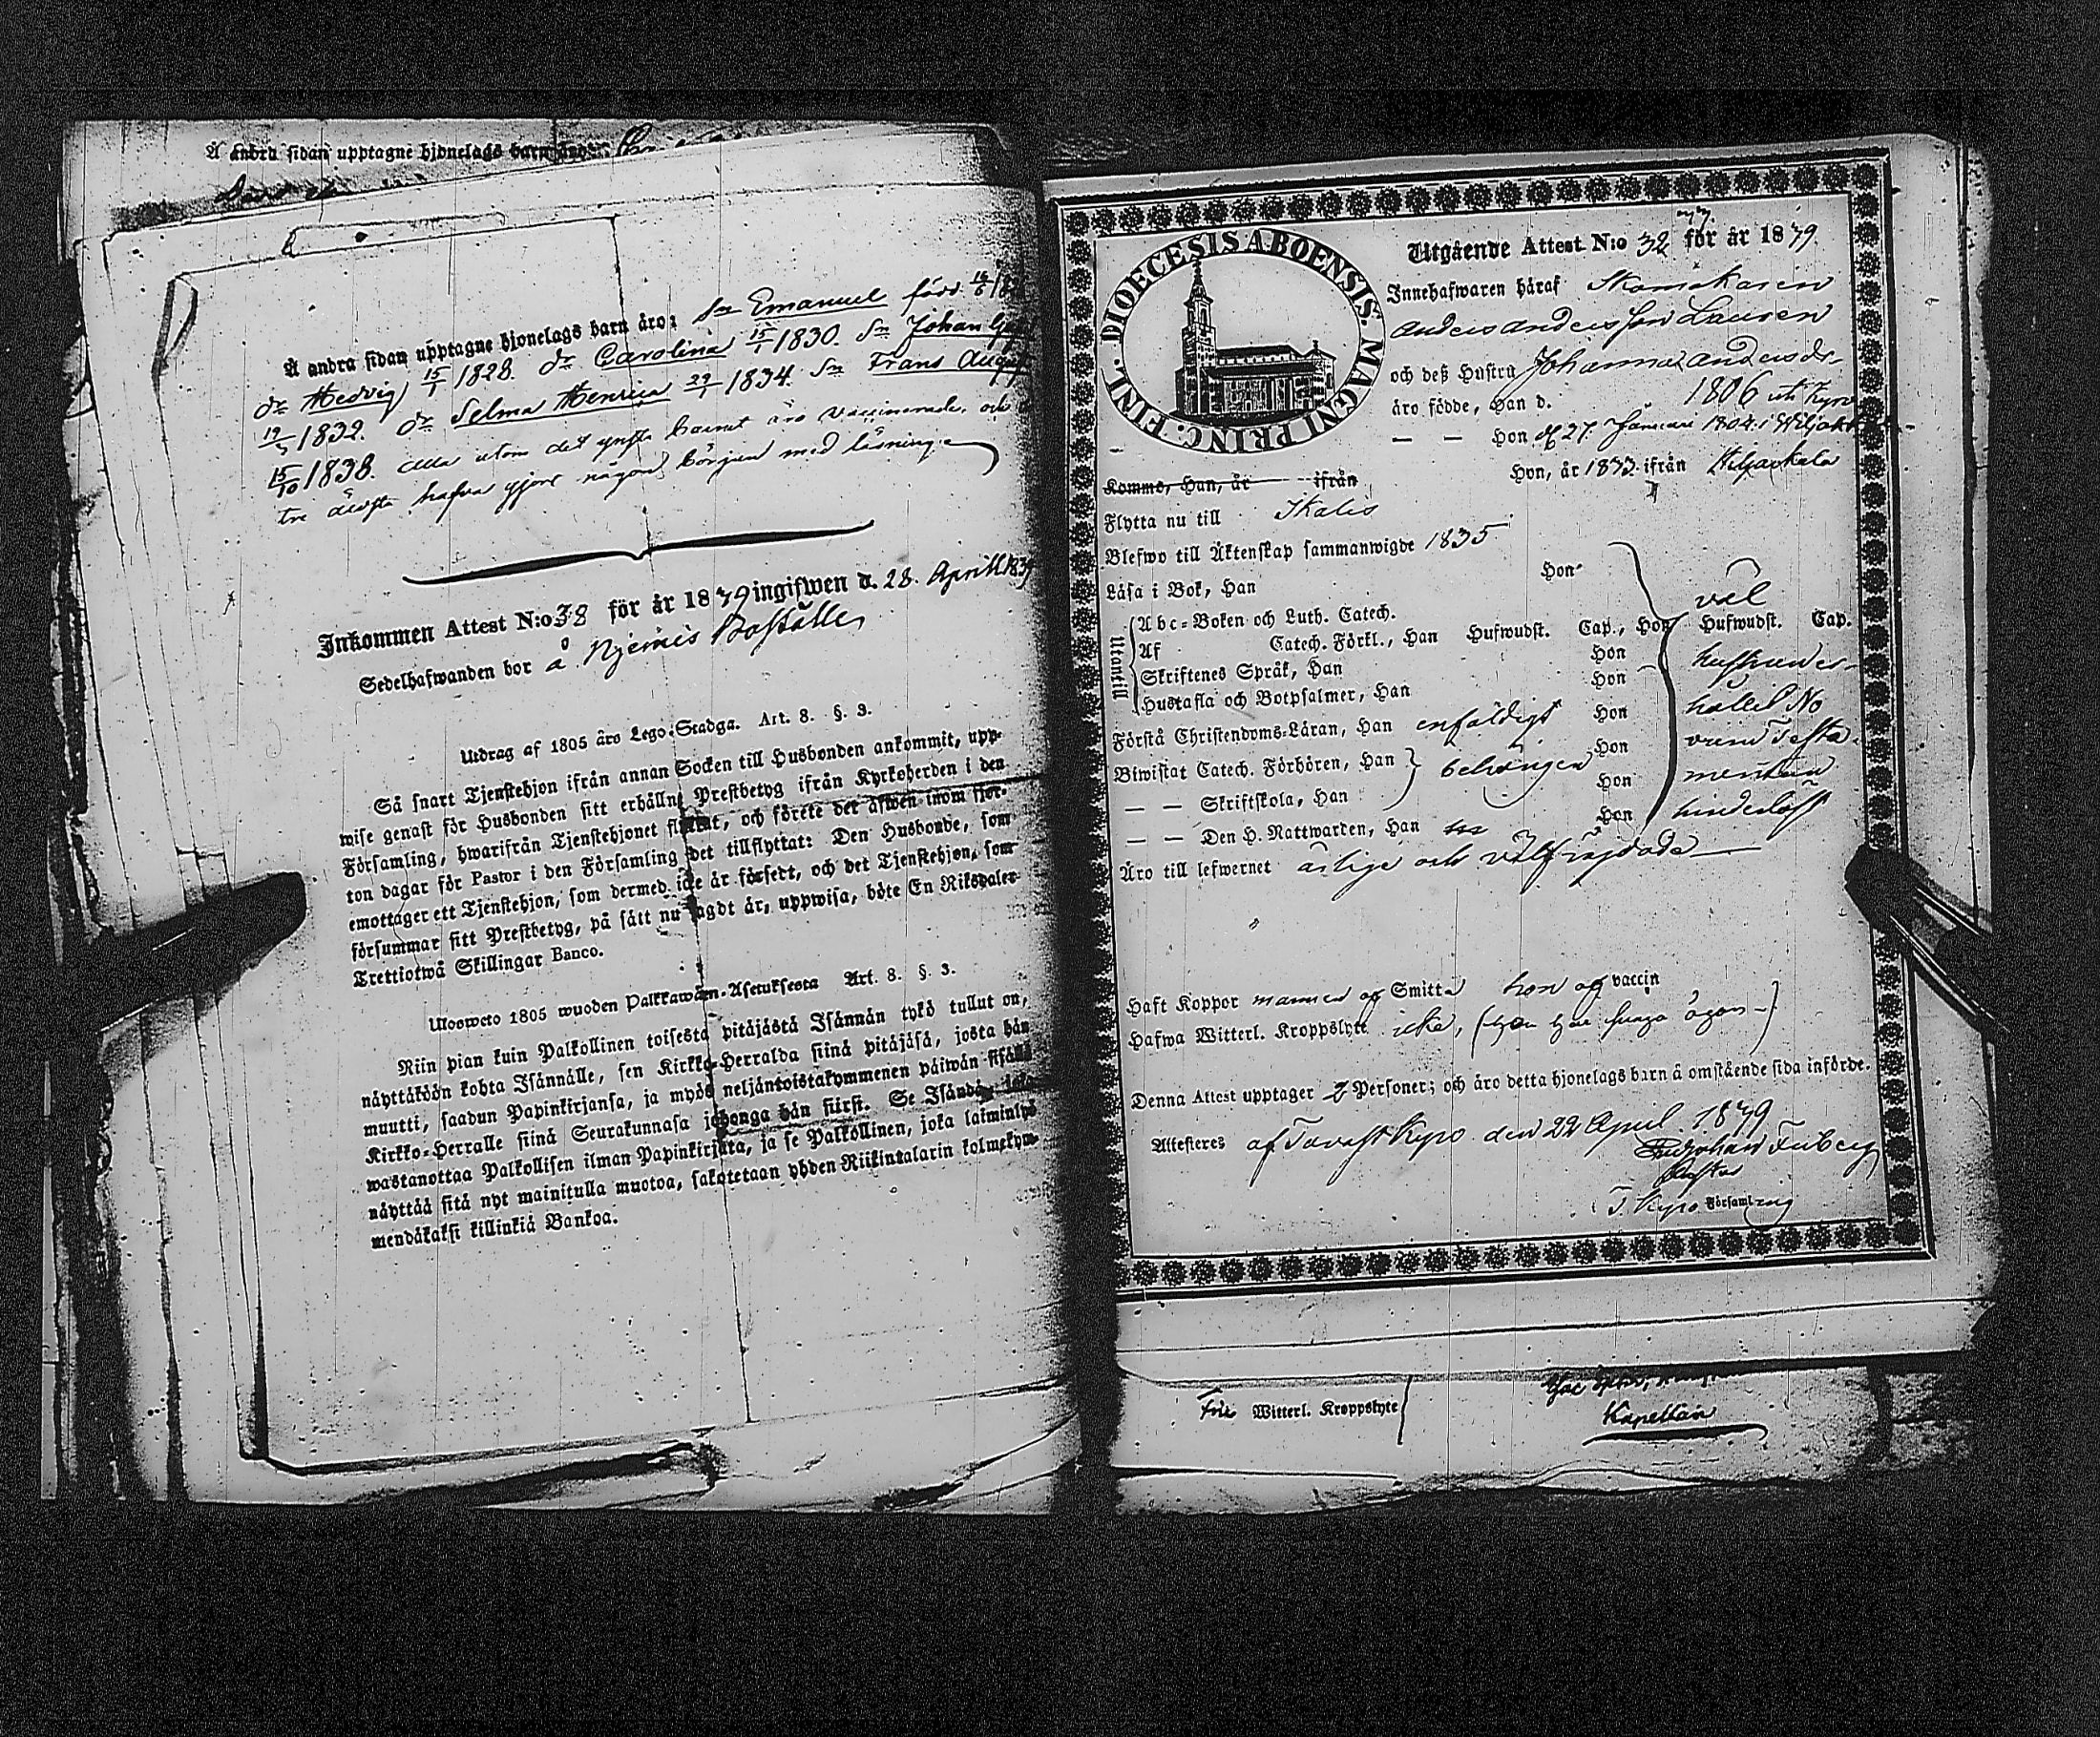 Å andra sidan upptagne hjonelags barn äro:
Å andra sidan upptagne hjonelags barn äro: sn Emanuel född
dr Hedvig 15/1 1828. dr Carolina 15/1 1830. sn Johan
1832. dr Selma Henrica 29/1 1834. sn Frans August
15/10 1838. alla utom det yngsta barnet äro vaccinerade, och
tre äldsta hafva gjort någon början med läsning.
Inkommen Attest N:o 38 för år 1839 ingifwen d. 28. Aprill 1839
Sedelhafwanden bor å Njemis Boställe
Utdrag af 1805 års Lego-Stadga. Art. 8. §. 3.
Så snart Tjenstehjon ifrån annan Socken till Husbonden ankommit, upp-
wise genast för Husbonden sitt erhållne Prestbetyg ifrån Kyrkoherden i den
Församling, hwarifrån Tjenstehjonet flyttat, och förete det äfwen inom fjor-
ton dagar för Pastor i den Församling det tillflyttat: Den Husbonde, som
emottager ett Tjenstehjon, som dermed icke är försedt, och det Tjenstehjon, som
försummar sitt Prestbetyg, på sätt nu sagdt är, uppwisa, böte En Riksdaler
Trettiotwå Skillingar Banco.
Ulosweto 1805 wuoden Palkkawäen-Asetuksesta Art. 8. §. 3.
Niin pian kuin Palkollinen toisesta pitäjästä Isännän tykö tullut on,
näyttäköön kohta Isännälle, sen Kirkko-Herralda siinä pitäjäsä, josta hän
muutti, saadun Papinkirjansa, ja myös neljäntoistakymmenen päiwän sisällä
Kirkko-Herralle siinä Seurakunnasa johonga hän siirst. Se Isändä, joka
wastanottaa Palkollisen ilman Papinkirjata, ja se Palkollinen, joka laiminlyö
näyttää sitä nyt mainitulla muotoa, sakotetaan yhden Riikintalarin kolmekym-
mendäkaksi killinkiä Bankoa.
DIOECESIS ABOENSIS. MAGNI PRINC. FINL.
Utgående Attest N:o 32 för år 1839.
Innehafwaren häraf Skomakaren
Anders Andersson Lauren
och deß Hustru Johanna Andersdr
äro födde, Han d. 1806 uti Kyro
— — Hon d 27. Januari 1804 i
Komne, Han, år ifrån Hon, år 1833 ifrån
Flytta nu till Ikalis
Blefwo till Äktenskap sammanwigde 1835
Läsa i Bok, Han Hon väl
Utantill
Abc-Boken och Luth. Catech.
Af Catech. Förkl., Han Hufwudst. Cap., Hon Hufwudst. Cap.
Skriftenes Språk, Han Hon
Hustafla och Botpsalmer, Han Hon
Förstå Christendoms-Läran, Han enfaldigt Hon
Biwistat Catech. Förhören, Han behörigen Hon
— — Skriftskola, Han Hon
— — Den H. Nattwarden, Han Hon
Äro till lefwernet ärlige och välfräjdade
Haft Koppor mannen af Smitta hon af vaccin
Hafwa Witterl. Kroppslyte icke,
Denna Attest upptager 2 Personer; och äro detta hjonelags barn å omstående sida införde.
Attesteres af Tavast Kyro den 22 April 1839
Pastor
T. Kyro Församling
Fri Witterl. Kroppslyte
Kapellan